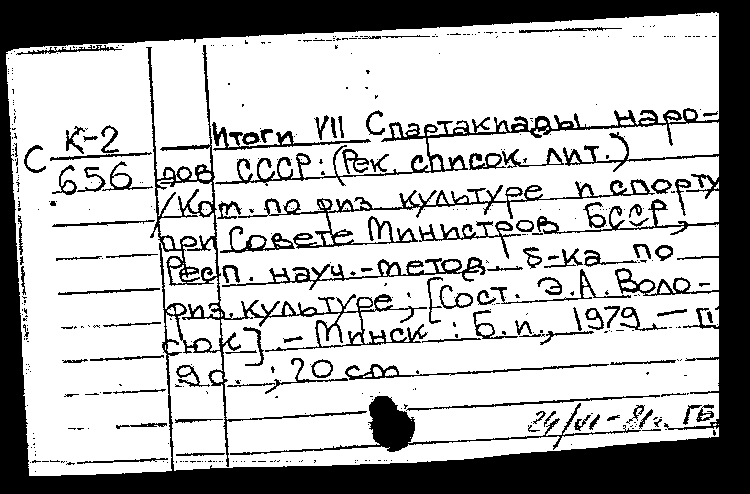 К-2
С 656
Итоги VII Спартакиады наро-
дов СССР: (Рек. список. лит.)
/Ком. по физ культуре и спорту
при Совете Министров БССР,
Респ. науч.-метод. б-ка по
физ. культуре; [Сост. Э.А. Воло-
сюк]. – Минск : Б.и., 1979. –
9 с. ; 20 cm.
24/VI – 81г. ГБ